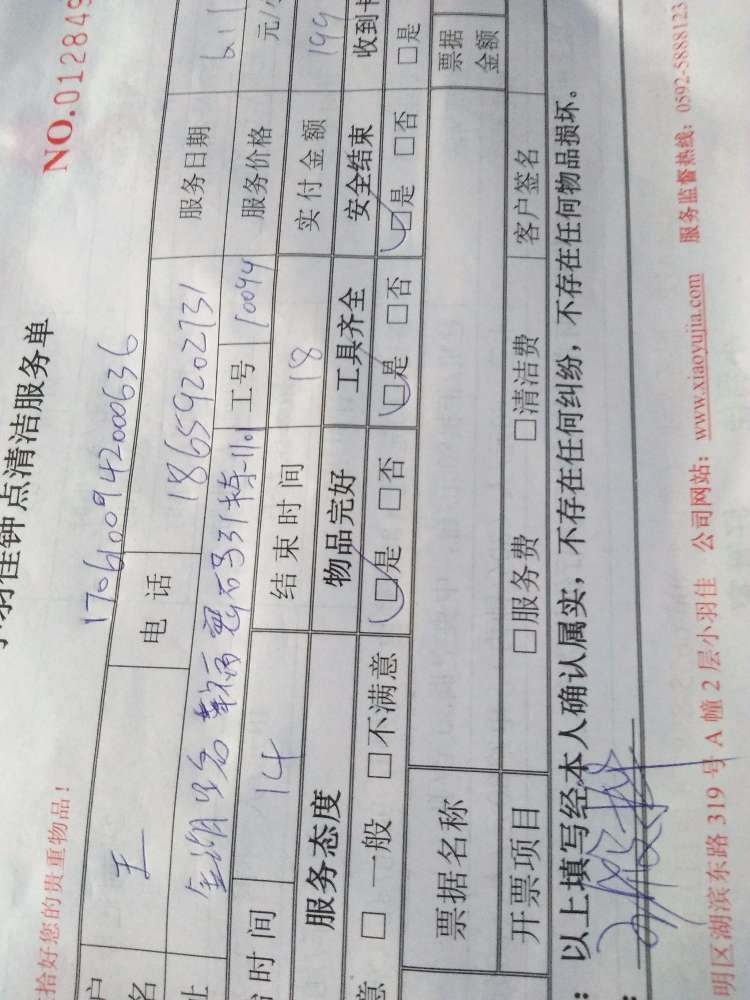 羽佳钟点清洁服务单
NO.012849
拾好您的贵重物品!
1706100942000636
户名 王 电话 18659202731 服务日期 6.11
址 金湖 31栋-1101 工号 10094 服务价格 元/
时间 14 结束时间 18 实付金额 199
服务态度 物品完好 工具齐全 安全结束 收到
意 □一般 □不满意 □是 □否 □是 □否 □是 □否 □是
票据名称 票据金额
开票项目 □服务费 □清洁费 客户签名
:以上填写经本人确认属实,不存在任何纠纷,不存在任何物品损坏。
明区湖滨东路 319 号 A 幢 2 层小羽佳 公司网站:www.xiaoyujia.com 服务监督热线:0592-5888123